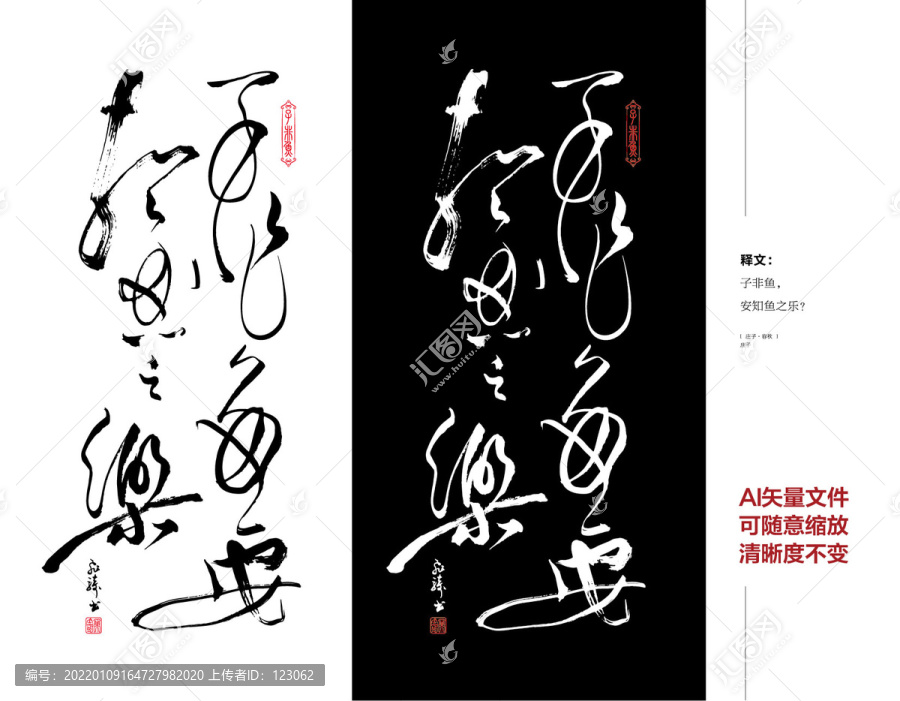 子非鱼安
知鱼之樂
子非魚
子非鱼安
知鱼之樂
子非魚
释文：
子非鱼，
安知鱼之乐?
AI矢量文件
可随意缩放
清晰度不变
汇图网
www.huitu.com
编号：20220109164727982020 上传者ID：123062